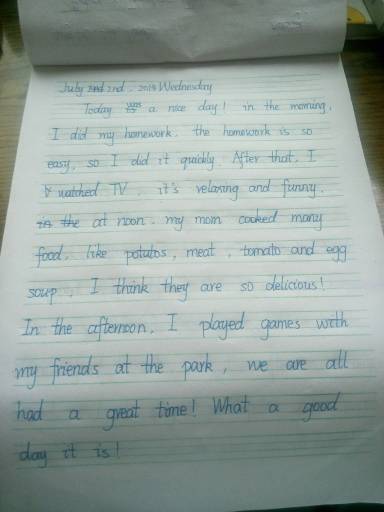 July 2nd. 2014 Wednesday
Today was a nice day! in the morning,
I did my homework. the homework is so
easy, so I did it quickly. After that, I
watched TV. it's relaxing and funny.
in the at noon. my mom cooked many
food. like potatos, meat, tomato and egg
soup. I think they are so delicious!
In the afternoon, I played games with
my friends at the park, we are all
had a great time! What a good
day it is!